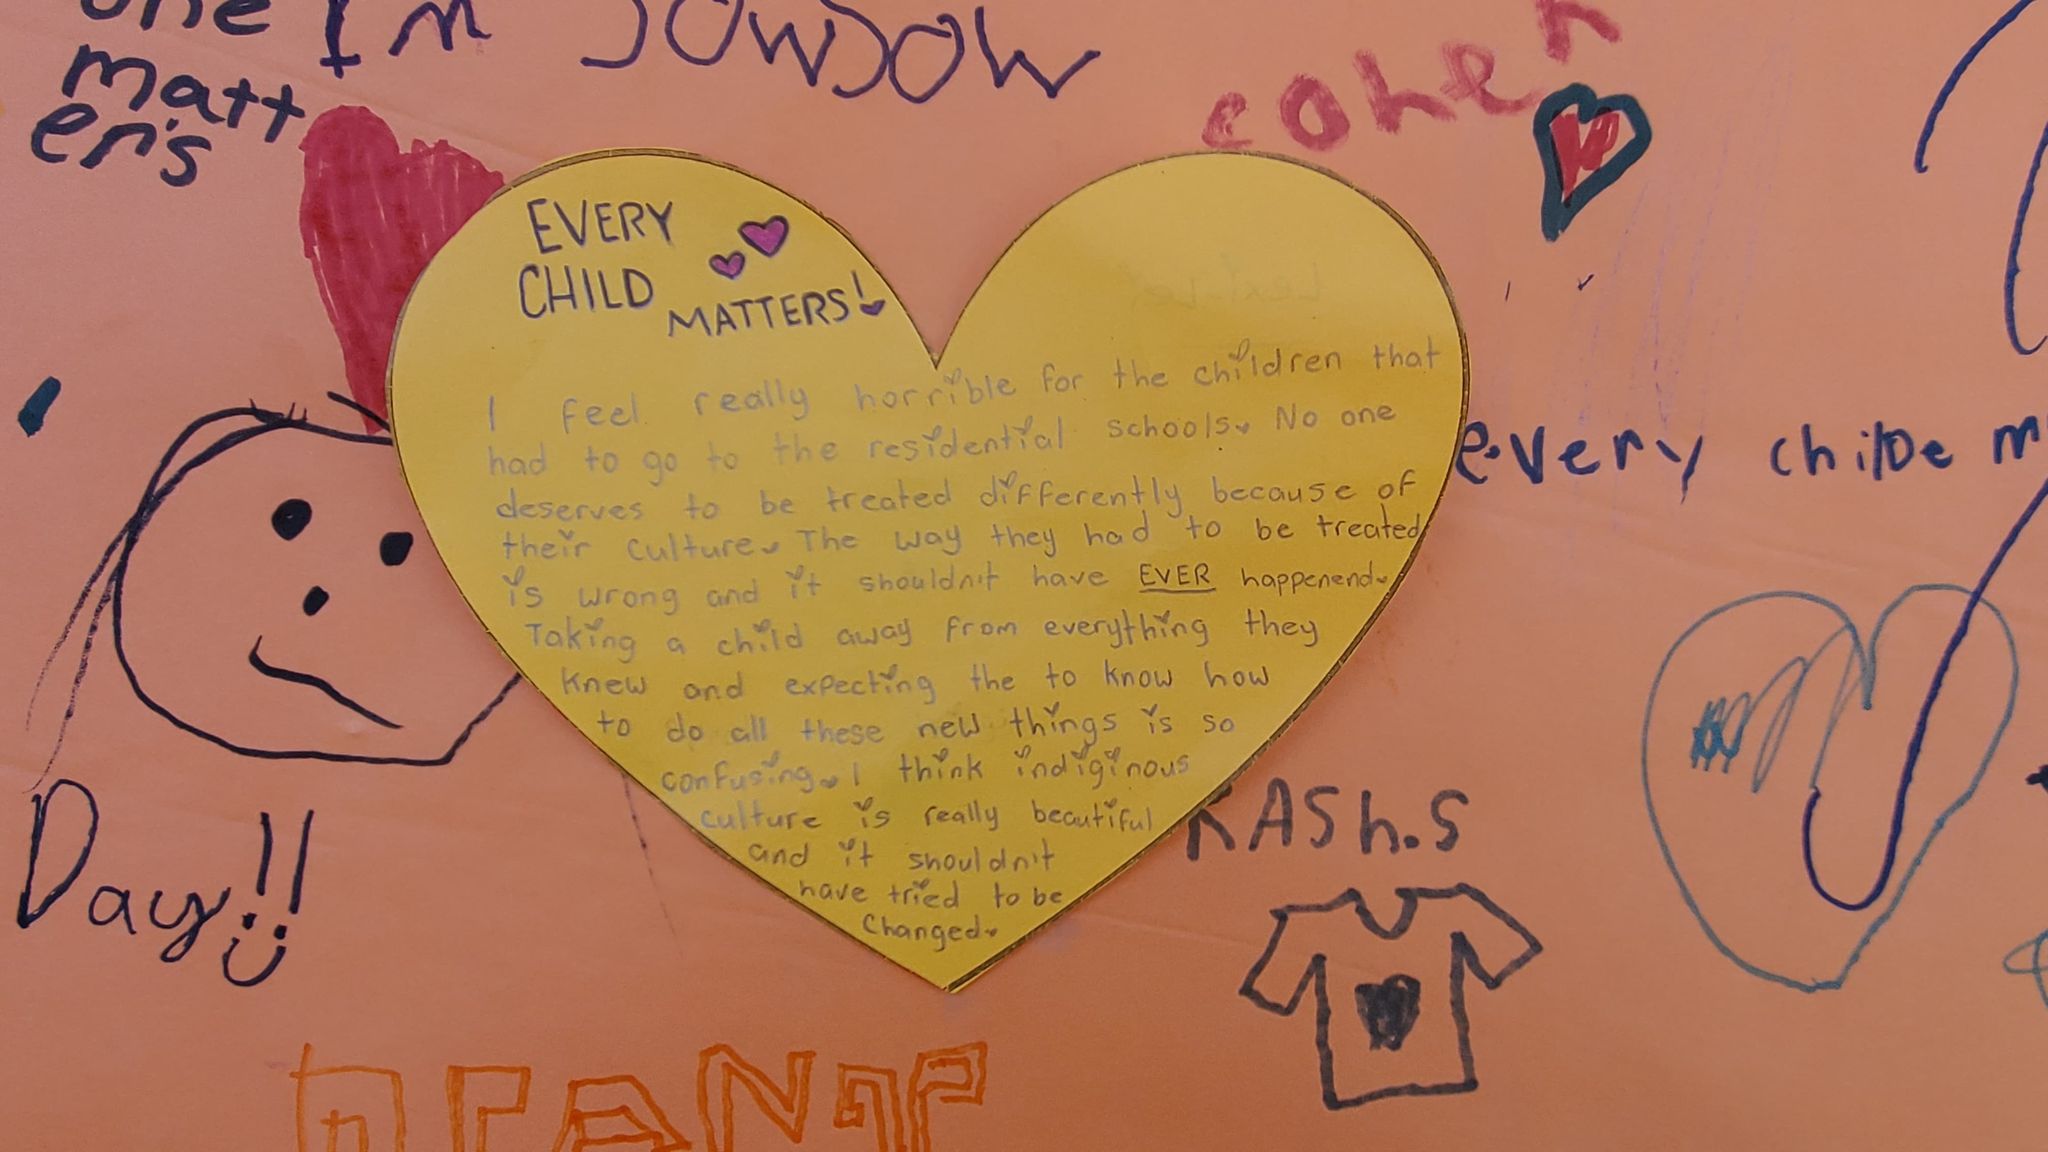 one
matt
er's
I'm JOWJOW
cohen
EVERY
CHILD
MATTERS!
I feel really horrible for the children that
had to go to the residential schools. No one
deserves to be treated differently because of
their culture. The way they had to be treated
is wrong and it shouldn't have EVER happenend.
Taking a child away from everything they
knew and expecting the to know how
to do all these new things is so
confusing. I think indiginous
culture is really beautiful
and it shouldn't
have tried to be
changed.
every childe m
Day!!
KASh.S